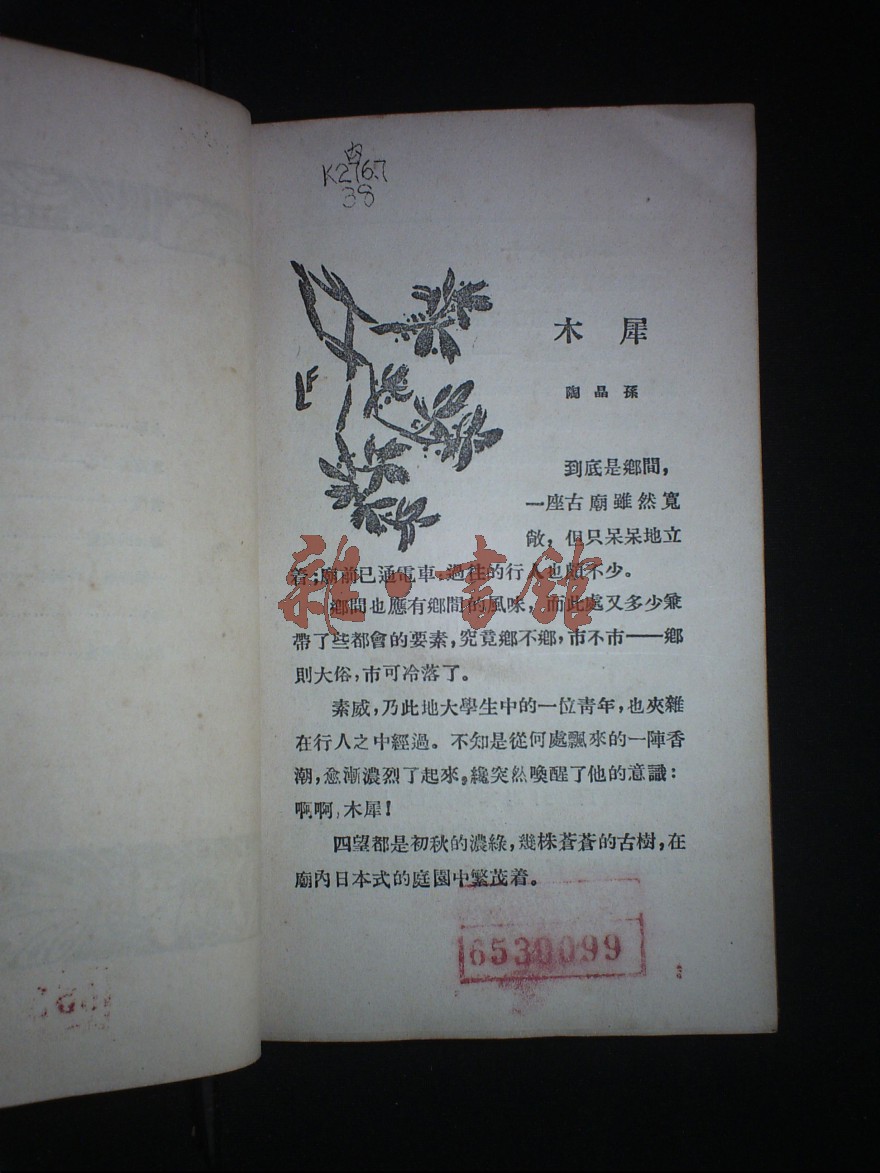 内
K276.7
38
木犀
陶晶孫
LF
到底是鄉間，
一座古廟雖然寬
敞，但只呆呆地立
着；廟前已通電車，過往的行人也頗不少。
鄉間也應有鄉間的風味，而此處又多少兼
帶了些都會的要素，究竟鄉不鄉，市不市——鄉
則大俗，市可冷落了。
素威，乃此地大學生中的一位靑年，也夾雜
在行人之中經過。不知是從何處飄來的一陣香
潮，愈漸濃烈了起來，纔突然喚醒了他的意識：
啊啊，木犀！
四望都是初秋的濃綠，幾株蒼蒼的古樹，在
廟內日本式的庭園中繁茂着。
雜·書館
6530099